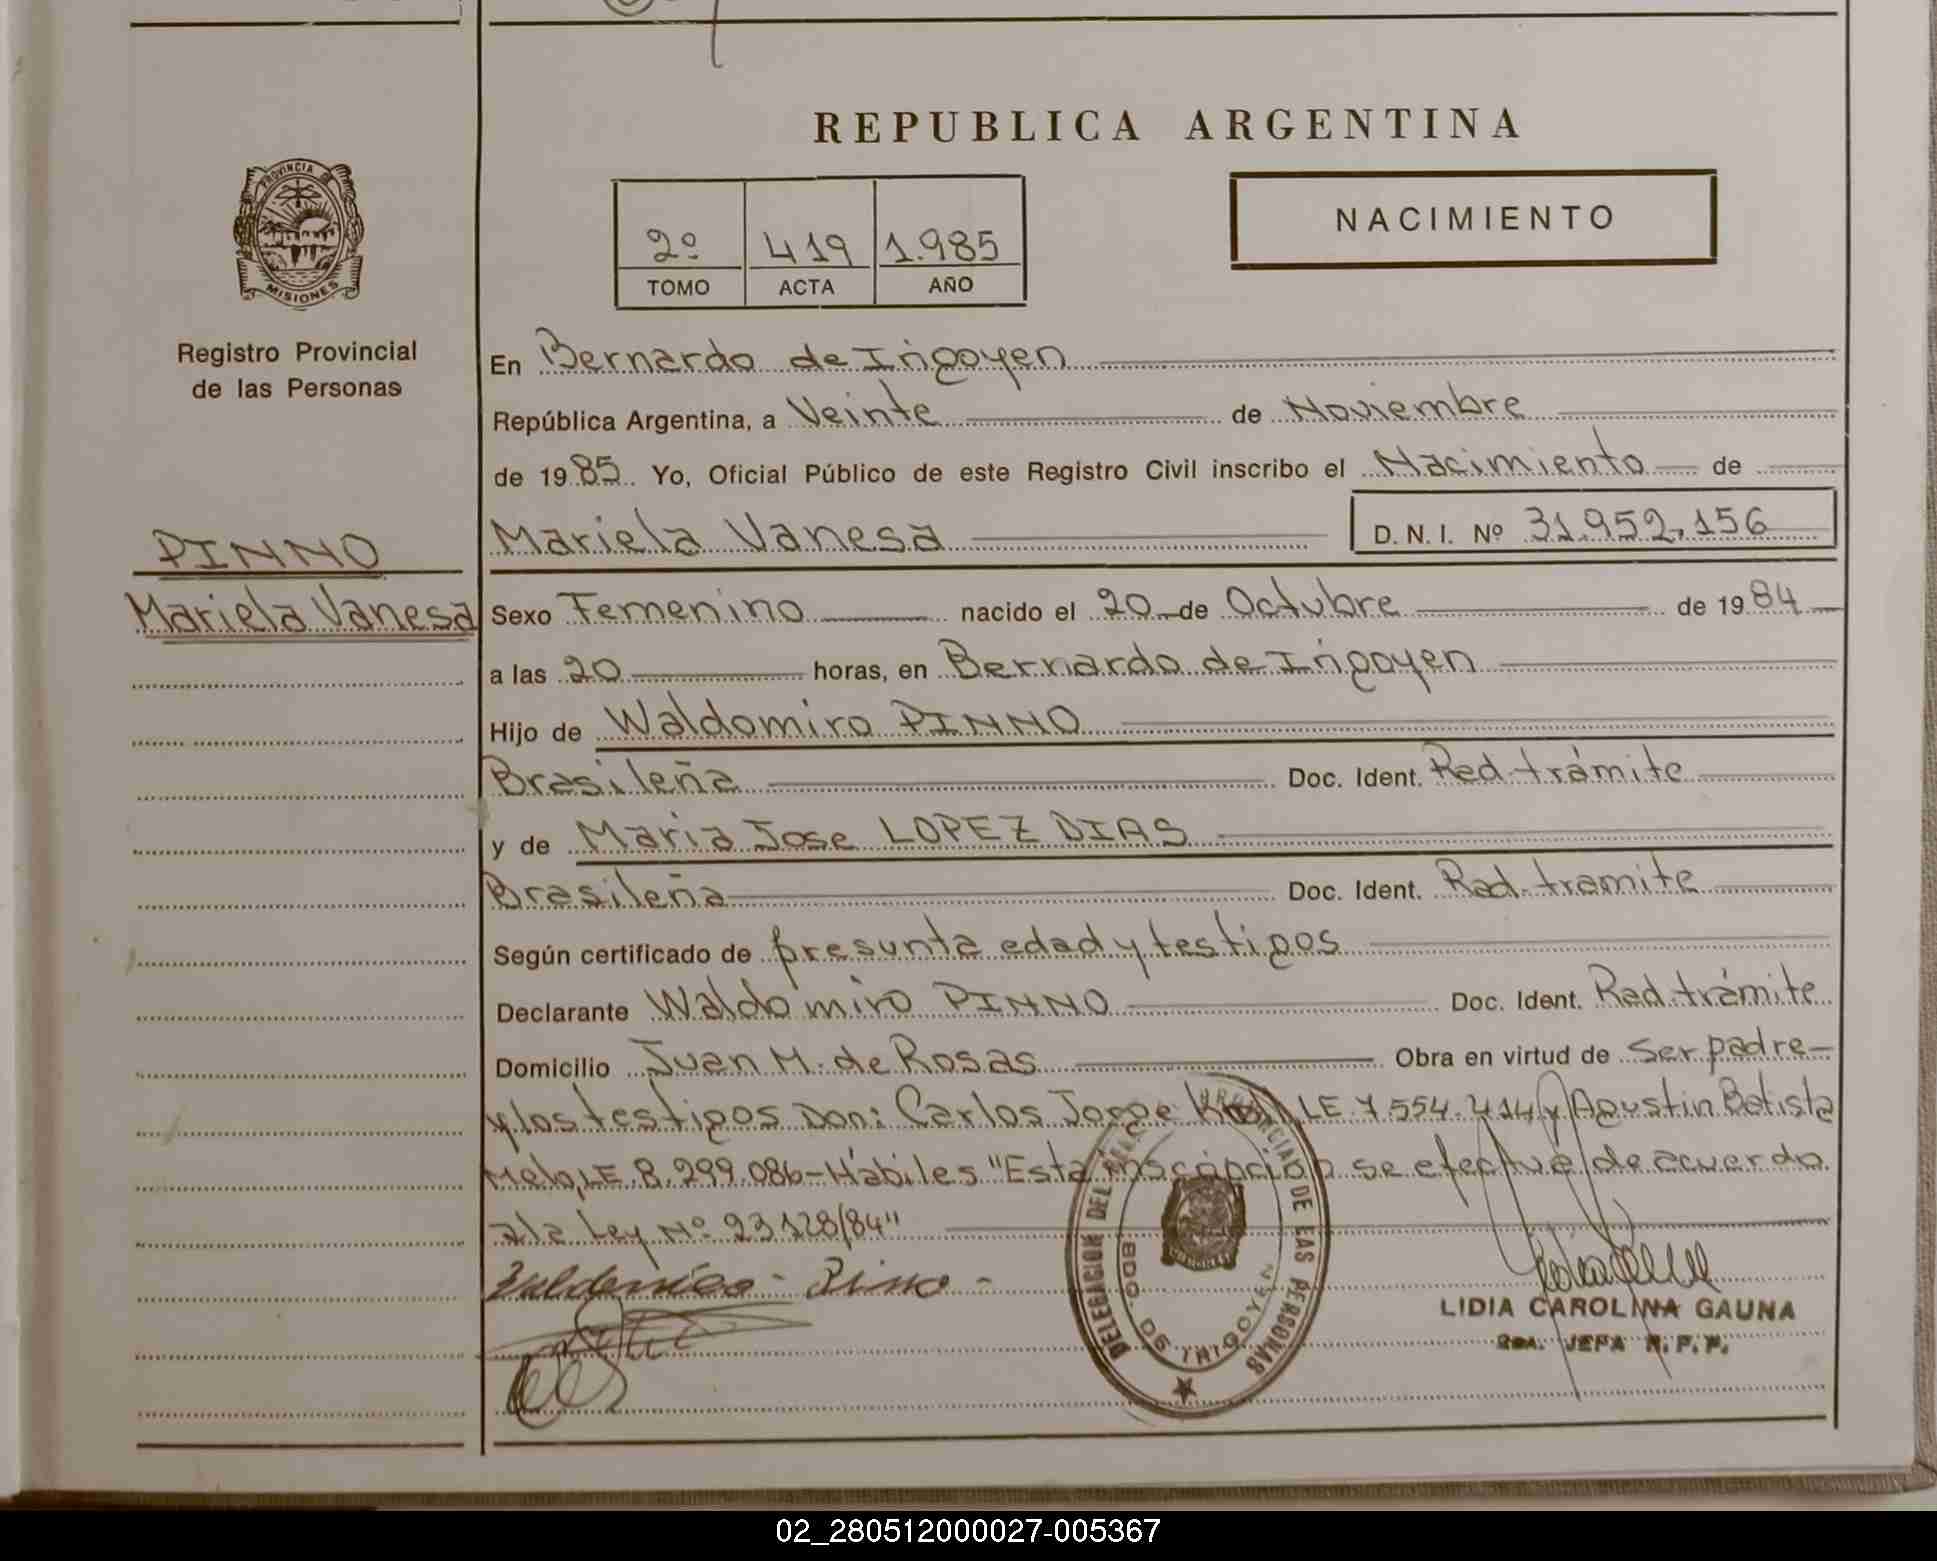 REPUBLICA ARGENTINA
PROVINCIA D
MISIONES
Registro Provincial
de las Personas
2º 419 1.985
TOMO ACTA AÑO
NACIMIENTO
En Bernardo de Irigoyen
República Argentina, a Veinte de Noviembre
de 1985. Yo, Oficial Público de este Registro Civil inscribo el Nacimiento de
Mariela Vanesa D. N. I. Nº 31.952.156
PINNO
Mariela Vanesa
Sexo Femenino nacido el 20 de Octubre de 1984
a las 20 horas, en Bernardo de Irigoyen
Hijo de Waldomiro PINNO
Brasileña Doc. Ident. Rad. trámite
y de Maria Jose LOPEZ DIAS
Brasileña Doc. Ident. Rad. tramite
Según certificado de presunta edad y testigos
Declarante Waldomiro PINNO Doc. Ident. Rad. trámite
Domicilio Juan M. de Rosas Obra en virtud de ser padre-
y los testigos Don: Carlos Jorge LE. 7.554.414 y Agustin Batista
Melo, LE. 8.299.086-Hábiles "Esta inscripción se efectuó de acuerdo
a la Ley Nº 23128/84"
DELEGACION DEL PROVINCIAL DE LAS PERSONAS
BDO. DE IRIGOYEN
LIDIA CAROLINA GAUNA
JEFA R. P. P.
02_280512000027-005367